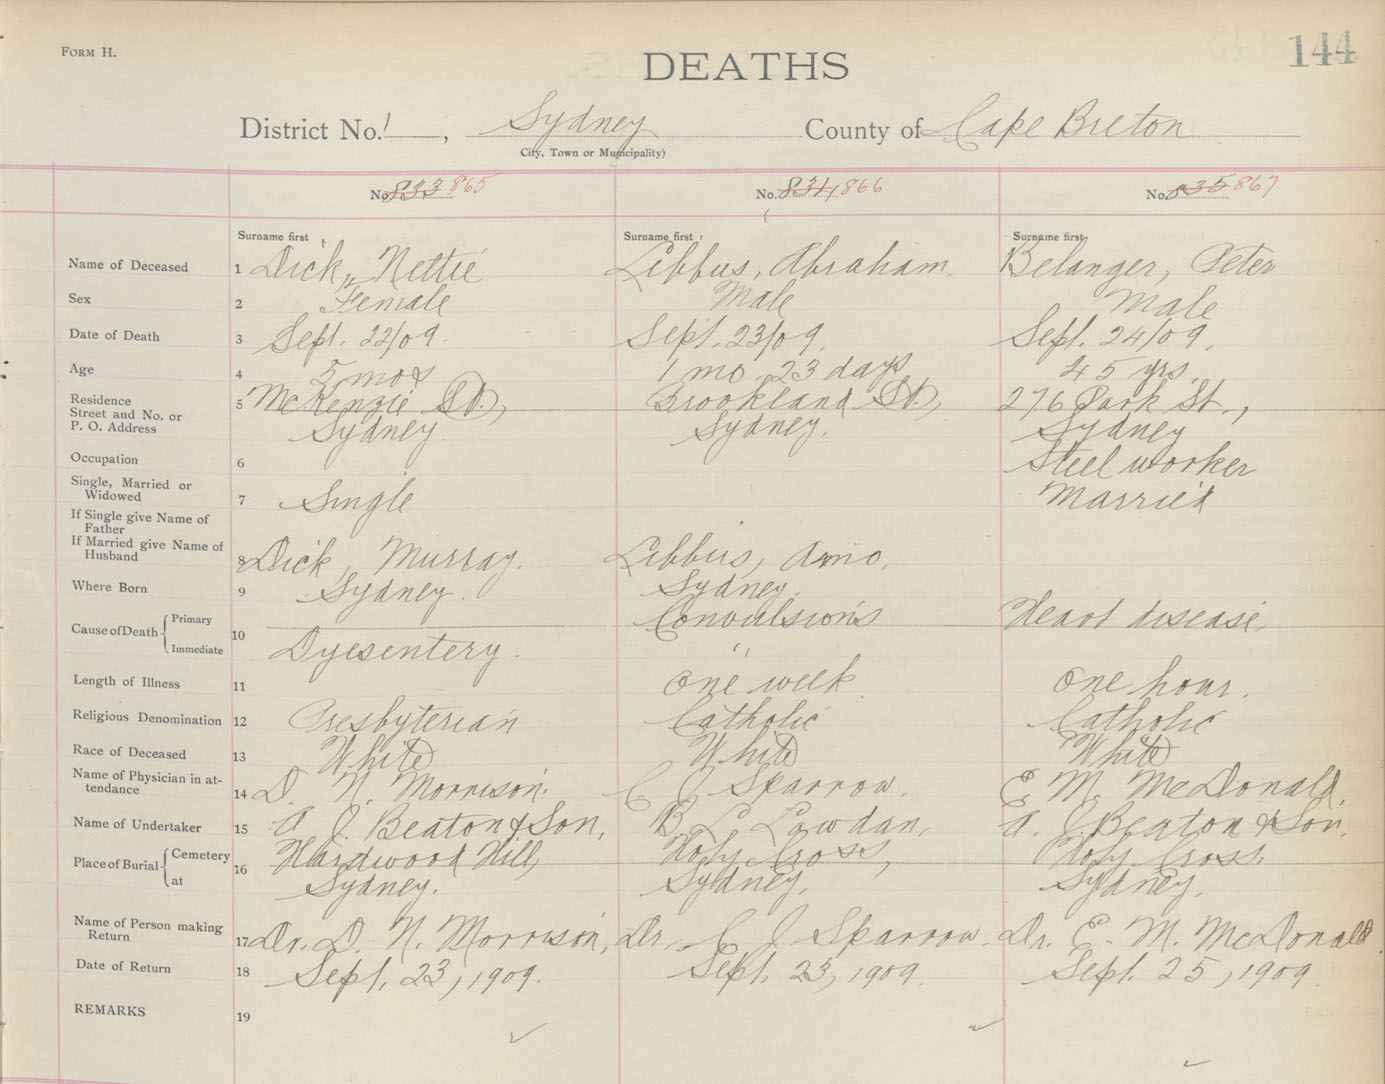 FORM H.
144
DEATHS
District No. 1, Sydney County of Cape Breton
City, Town or Municipality)
No. 833 865 No. 834 866 No. 835 867
Surname first Surname first Surname first
Name of Deceased 1 Dick, Nettie Libbus, Abraham. Belanger, Peter
Sex 2 Female Male Male
Date of Death 3 Sept. 22/09. Sept. 23/09. Sept. 24/09.
Age 4 5 mos 1 mo 23 days 45 yrs.
Residence
Street and No. or 5 McKenzie St., Brookland St., 276 Park St.,
P. O. Address Sydney Sydney. Sydney
Occupation 6 Steel worker
Single, Married or
Widowed 7 Single Married
If Single give Name of
Father
If Married give Name of
Husband 8 Dick, Murray. Libbus, Amo.
Where Born 9 Sydney. Sydney.
Cause of Death Primary 10 Convulsions Heart disease,
Immediate Dyesentery. "
Length of Illness 11 One week One hour.
Religious Denomination 12 Presbyterian Catholic Catholic
Race of Deceased 13 White White White
Name of Physician in at-
tendance 14 D. N. Morrison. C J Sparrow. E. M. McDonald.
Name of Undertaker 15 A J. Beaton & Son, B L Lowdan, A. J Beaton & Son.
Place of Burial Cemetery 16 Hardwood Hill, Holy Cross, Holy Cross,
at Sydney. Sydney. Sydney.
Name of Person making
Return 17 Dr. D. N. Morrison, Dr. C J Sparrow. Dr. E. M. McDonald.
Date of Return 18 Sept. 23, 1909. Sept. 23, 1909. Sept. 25, 1909.
REMARKS 19